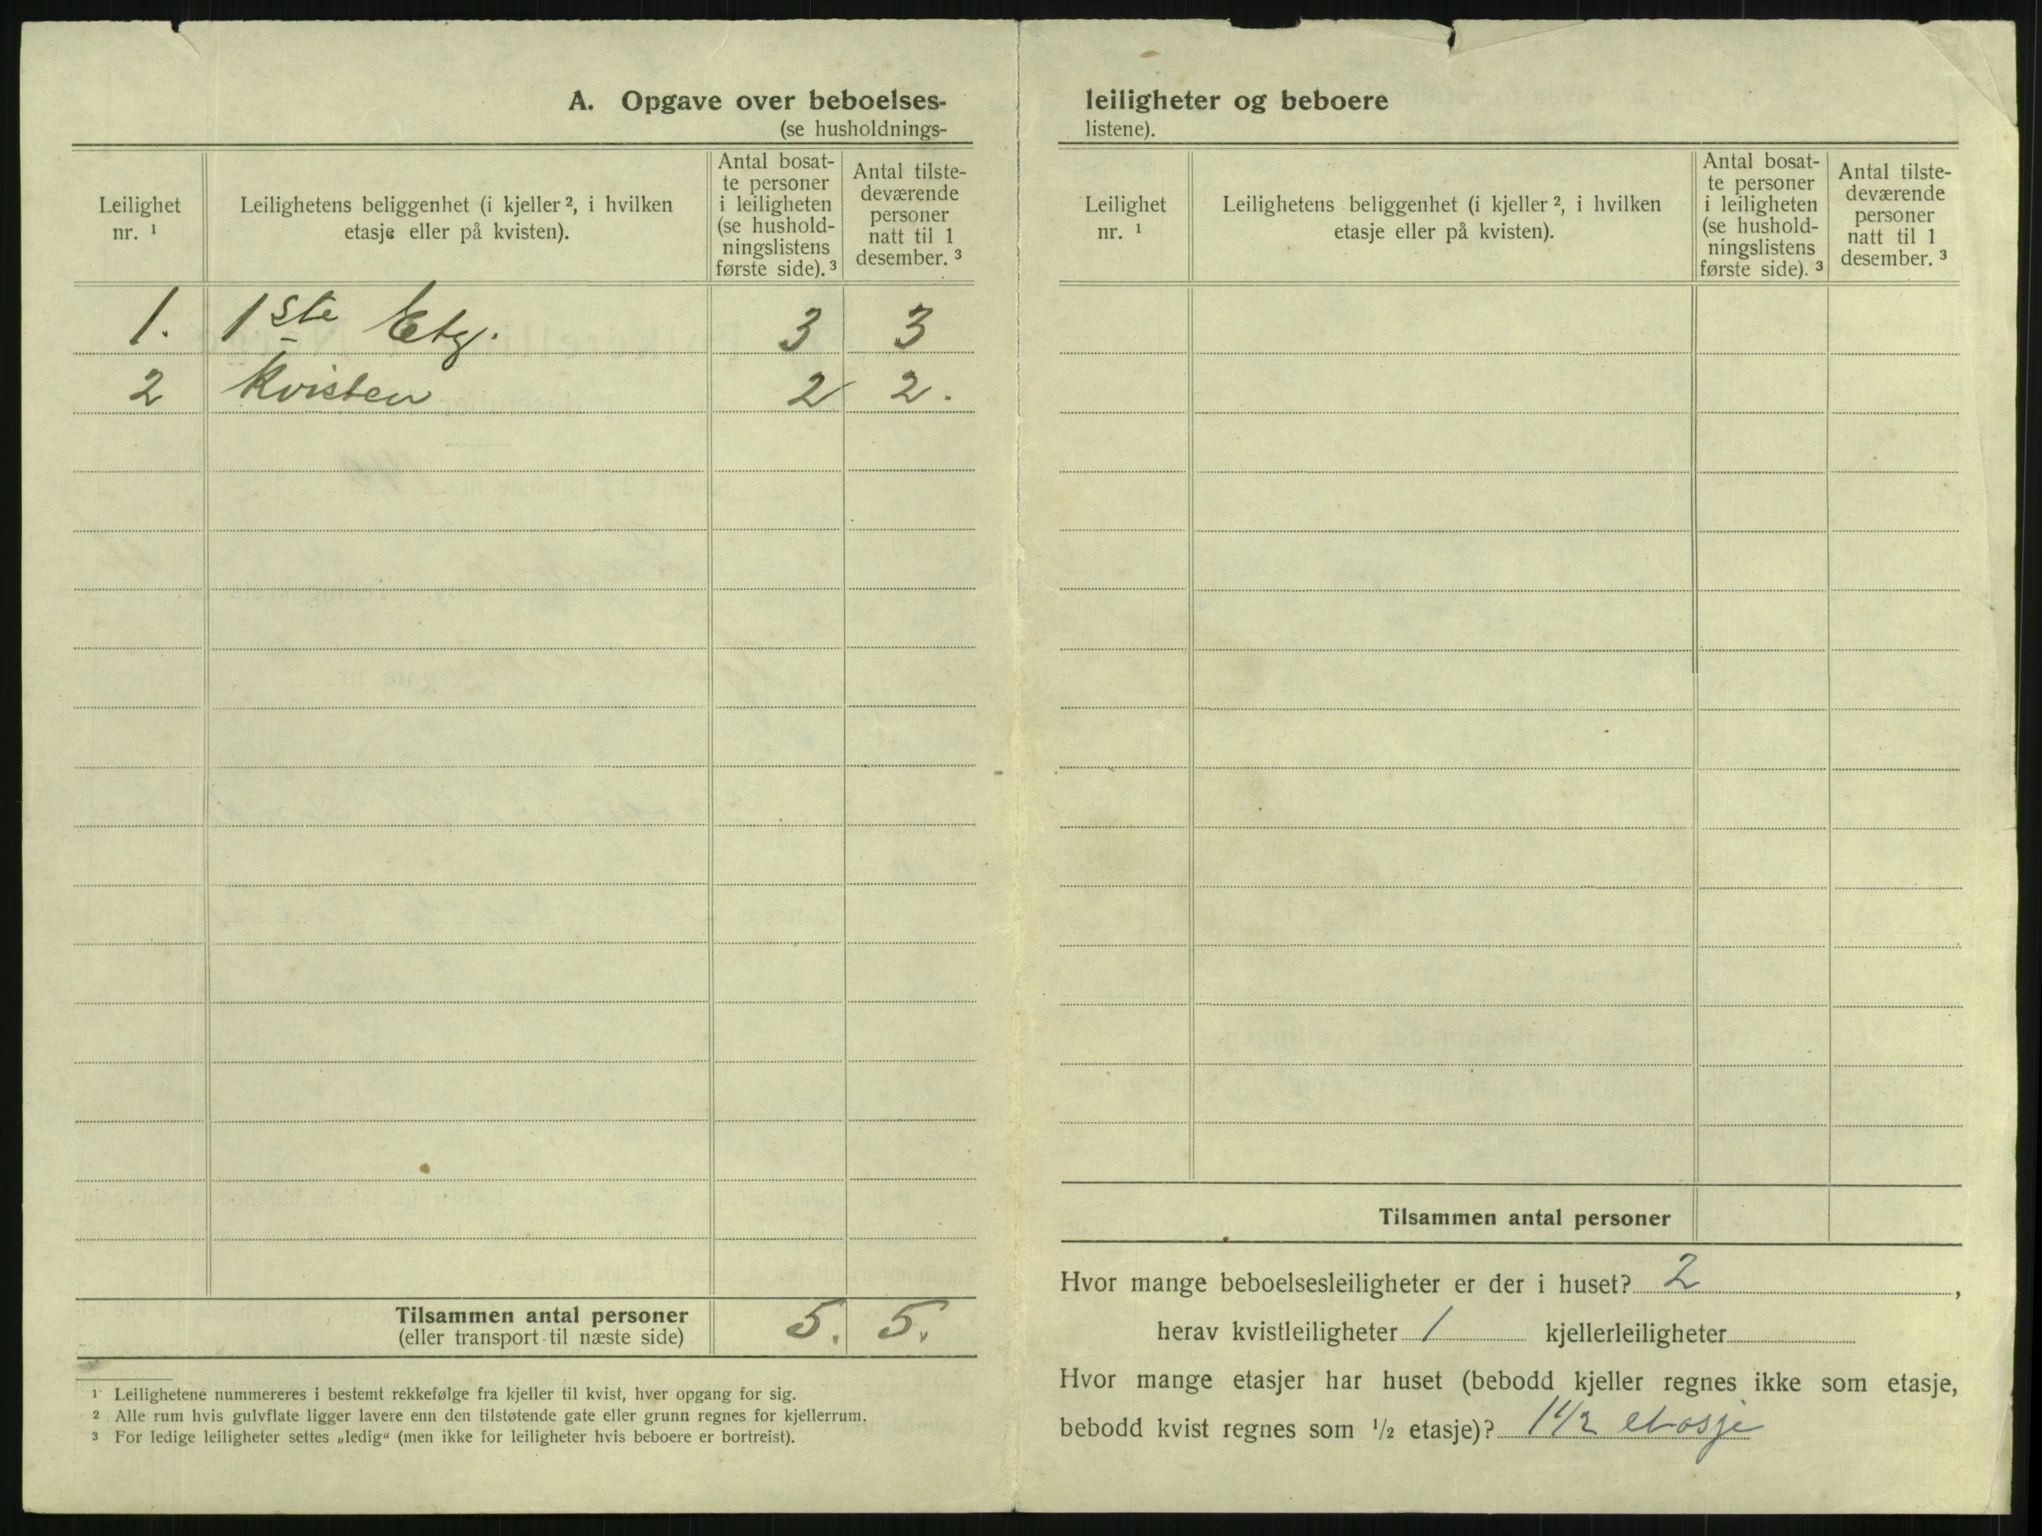 A. Opgave over beboelses-
(se husholdnings-
Leilighet
nr. ¹
Leilighetens beliggenhet (i kjeller ², i hvilken
etasje eller på kvisten).
Antal bosat-
te personer
i leiligheten
(se hushold-
ningslistens
første side). ³
Antal tilste-
deværende
personer
natt til 1
desember. ³
1. 1ste Etg. 3 3
2 Kvisten 2 2.
Tilsammen antal personer 5. 5.
(eller transport til næste side)
¹ Leilighetene nummereres i bestemt rekkefølge fra kjeller til kvist, hver opgang for sig.
² Alle rum hvis gulvflate ligger lavere enn den tilstøtende gate eller grunn regnes for kjellerrum.
³ For ledige leiligheter settes „ledig“ (men ikke for leiligheter hvis beboere er bortreist).
leiligheter og beboere
listene).
Leilighet
nr. ¹
Leilighetens beliggenhet (i kjeller ², i hvilken
etasje eller på kvisten).
Antal bosat-
te personer
i leiligheten
(se hushold-
ningslistens
første side). ³
Antal tilste-
deværende
personer
natt til 1
desember. ³
Tilsammen antal personer
Hvor mange beboelsesleiligheter er der i huset? 2 ,
herav kvistleiligheter 1 kjellerleiligheter
Hvor mange etasjer har huset (bebodd kjeller regnes ikke som etasje,
bebodd kvist regnes som ½ etasje)? 1 1/2 etasje